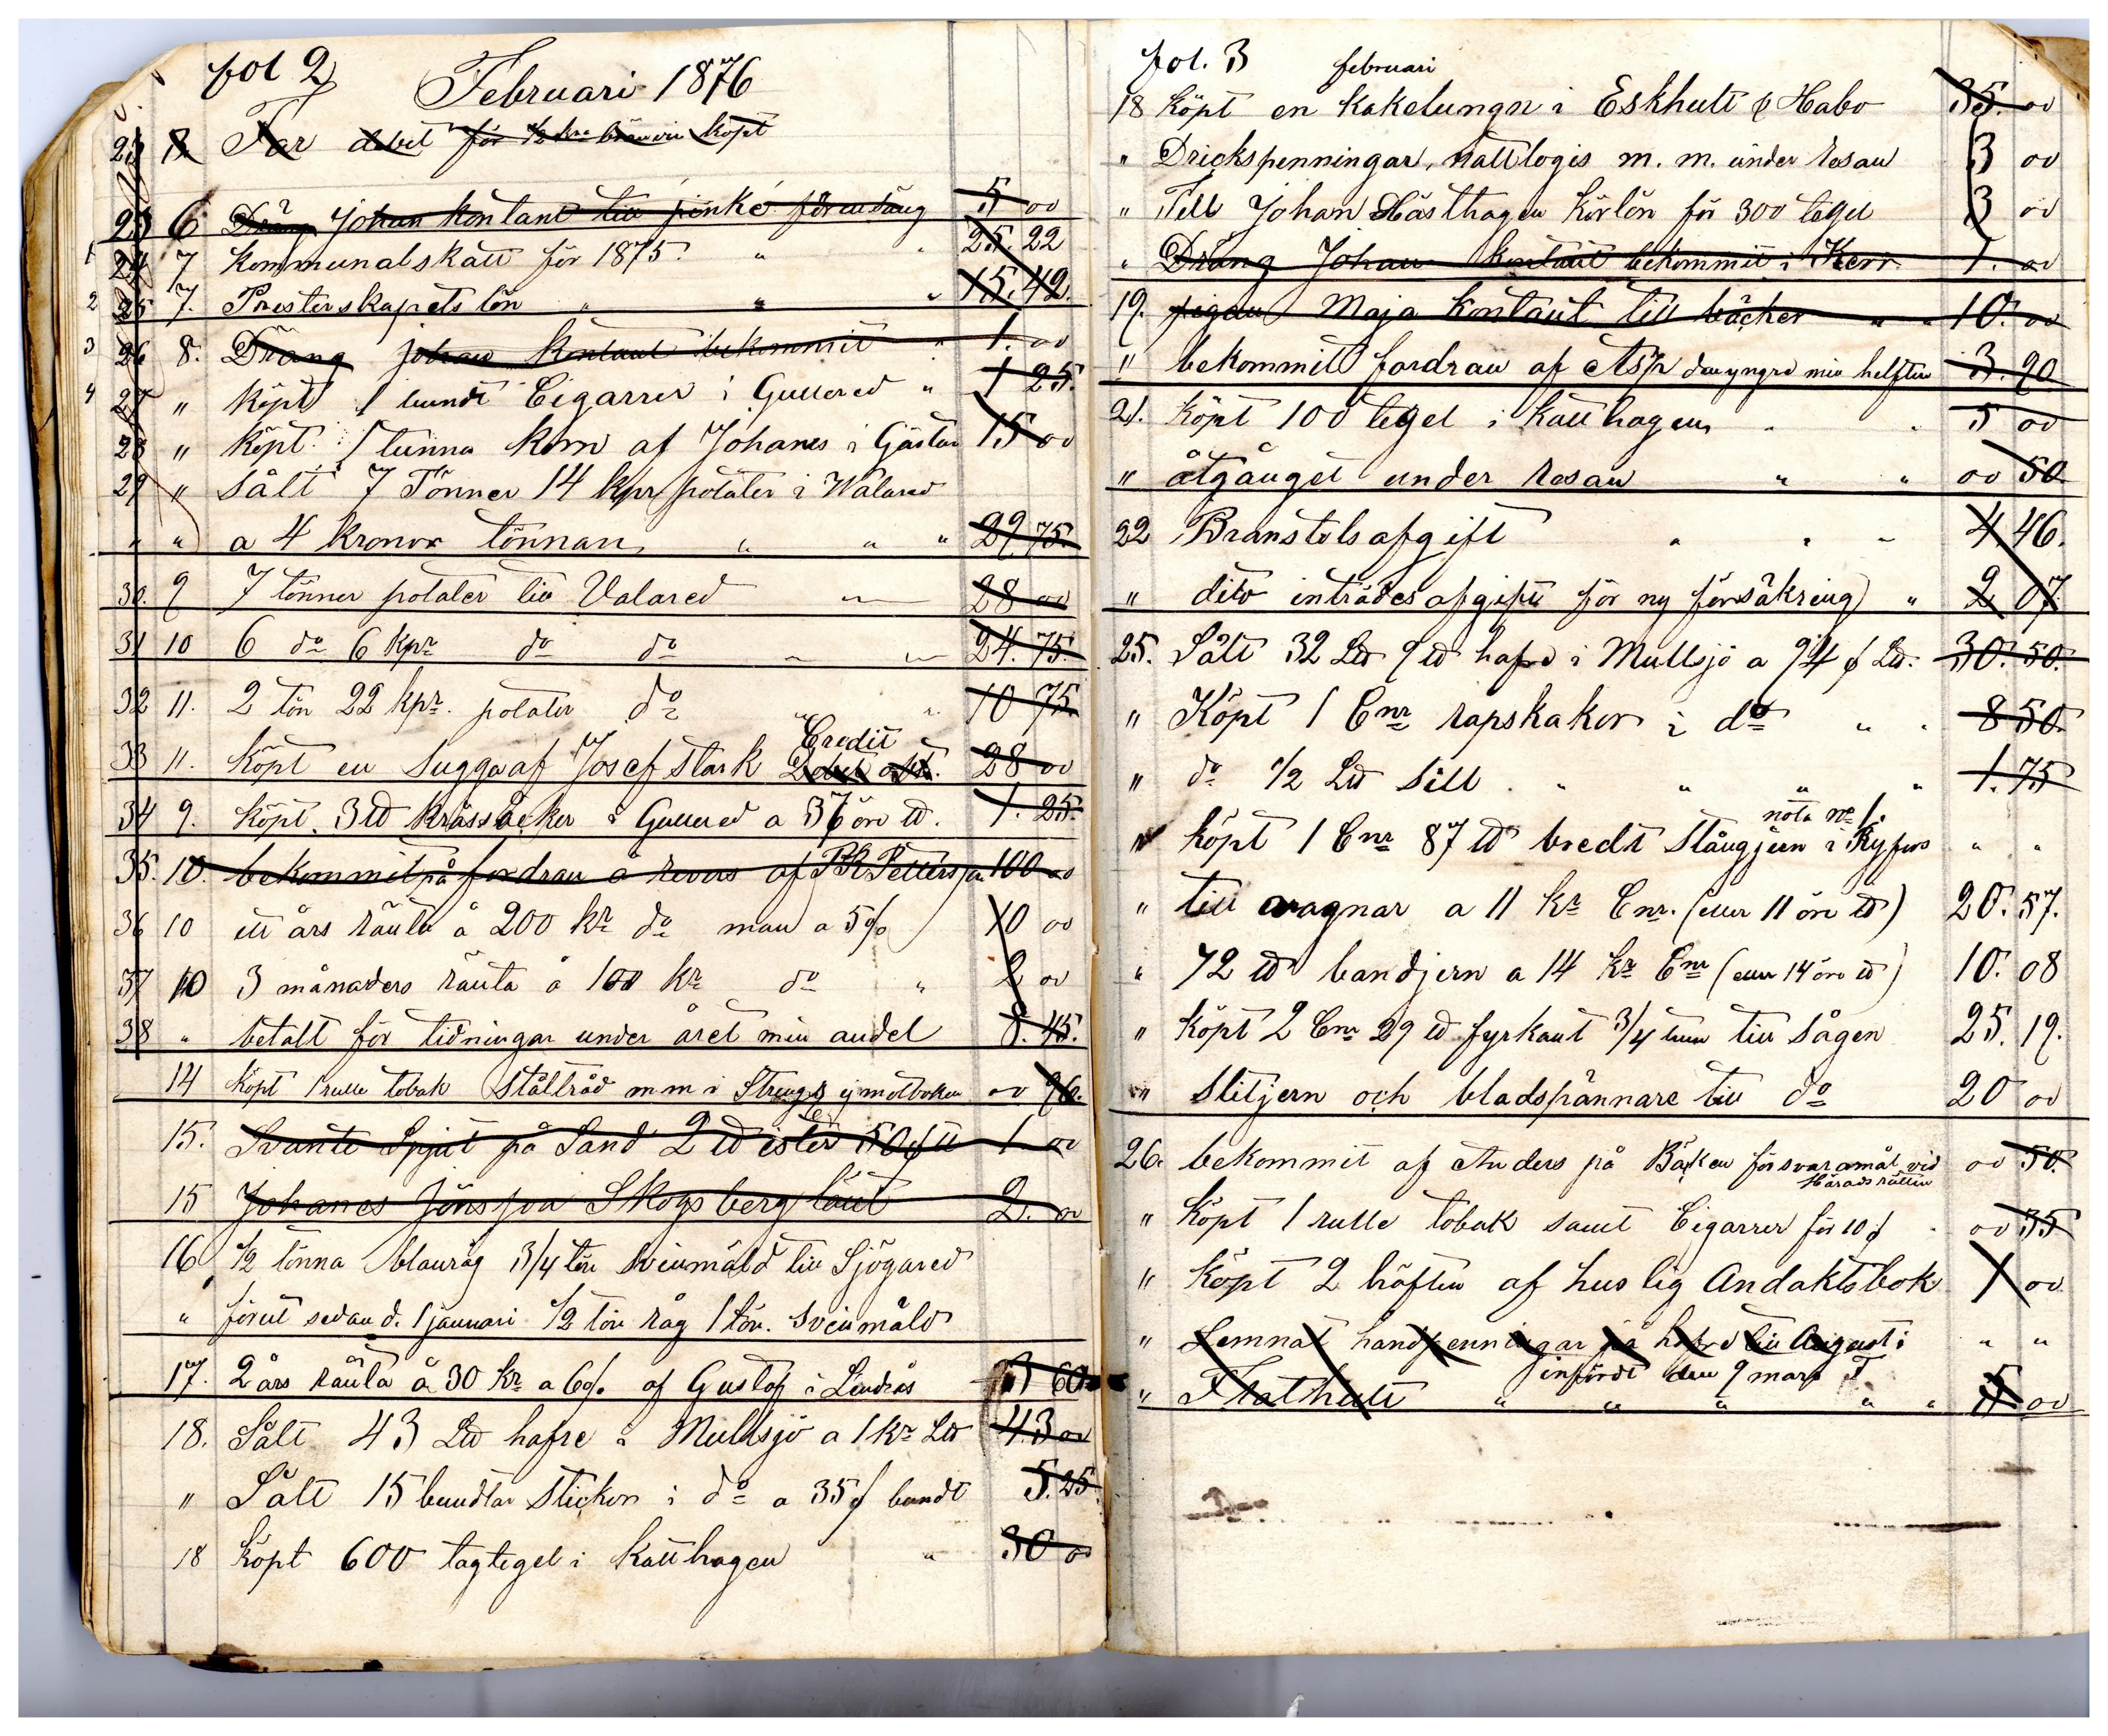 fol 2
Februari 1876
23 8. Far debet för 1/2 kna bränvin köpt
23 6 Dräng Johan kontant till
5 00
1 24 7 Kommunalskatt för 1875. " " 25. 22
2 25 7. Presterskapets lön " " " 15. 42.
3 26 8. Dräng johan kontant bekommit " 1. 00
4 27 " köpt 1 bundt Cigarrer i Gullered " 1 25.
28 " köpt 1 tunna korn af Johanes i Gästan 15 00
29 " sålt 7 Tönner 14 kpr potäter i Wålared
" " a 4 kronor tönnan " " " 29. 75.
30. 9 7 tönner potäter till Valared " 28 00
31 10 6 do 6 kpr do do " " 24. 75.
32 11. 2 tön 22 kpr. potäter do " " 10 75.
Credit
33 11. köpt en Sugga af Josef Stark Debet 28 00
34 9. köpt. 3 ℔ kråssåcker i Gullered a 37 öre ℔. 1. 25.
35. 10. bekommit på fordran å revers af Pettersson 100 00
36 10 ett års ränta å 200 kr do man a 5% 10 00
37 10 3 månaders ränta å 100 kr do " 2 00
38 " betalt för tidningar under året min andel 8. 45.
14 köpt 1 rulle tobak Ståltråd m m i ej motboken 00 96.
15. Svante Spjut på Sand 2 ℔ ister 50 1 00
15 Johanes Jönsson Skogsberg lånt 2. 00
16 1/2 tönna blanråg 3/4 tön sveinmäld till Sjögared
" förut sedan d. 1 januari 1/2 tön råg 1 tön. Sveinmåld
17. 2 års ränta å 30 kr a 6% af Gustaf i Lindrås 3 60
18. Sålt 43 L℔ hafre i Mullsjö a 1 kr L℔ 43 00
" Sålt 15 bundtar Stickor i do a 35 f bundt 5. 25.
18 köpt 600 tagtegel i Katthagen " 30 00
fol. 3 februari
18 köpt en kakelungn i Eskhult Habo 35. 00
" Drickspenningar, nattlogis m. m. under resan 3 00
" Till Johan Hästhagen körlön för 300 tegel 3 00
" Dräng Johan kontant bekommit i Kerr 1. 00
19. pigan Maja kontant till böcker " " 10. 00
" bekommit fordran af Asp den yngre min helften 3. 90
21. köpt 100 tegel i Katthagen " " 5 00
" åtgånget under resan " " 00 50.
22 Branstolsafgift " " " 4. 46.
" dito inträdesafgift för ny försäkring " 2 07.
25. Sålt 32 L℔ 9 ℔ hafre i Mullsjö a 94 f L℔. 30. 50.
" Köpt 1 Cnr rapskakor i do " " 8 50.
" do 1/2 L℔ Sill " " " " 1. 75
nota No 1.
" köpt 1 Cnr 87 ℔ bredt Stångjern i Ryfors " "
" till vagnar a 11 kr Cnr. (eller 11 öre ℔) 20. 57.
" 72 ℔ bandjern a 14 kr Cnr (eller 14 öre ℔) 10. 08
" köpt 2 Cnr 29 ℔ fyrkant 3/4 tum till Sågen 25. 19.
" Slitjern och bladspännare till do 20 00
26. bekommit af Anders på Bäcken försvaramål vid 00 50.
Häradsrätten
" Köpt 1 rulle tobak samt Cigarrer för 10 f " 00 35
" köpt 2 häften af huslig Andaktsbok 1 00
" Lemnat handpenningar på hafre till August i " "
infördt den 9 mars
" Flathult " " " " " 5 00